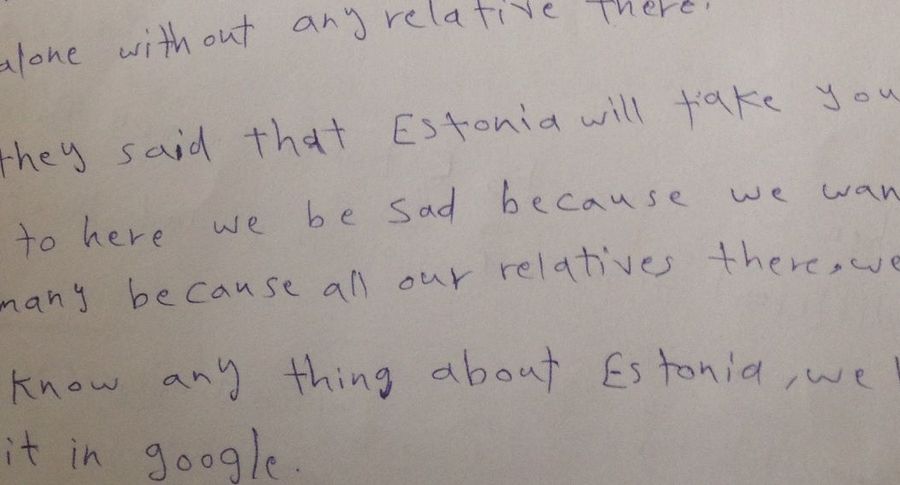 alone without any relative there.
they said that Estonia will take you
to here we be sad because we wan
many because all our relatives there, we
know any thing about Estonia, we
it in google.